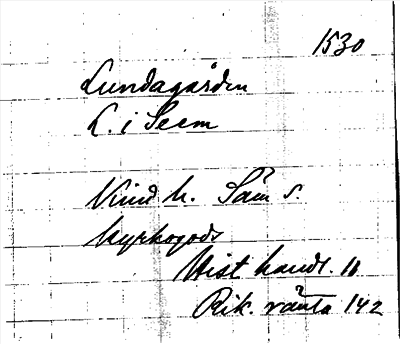 1530
Lundagården
L. i Seem
Kind h. Säm s.
kyrkogods
Hist handl. 11
Rik. ränta 142